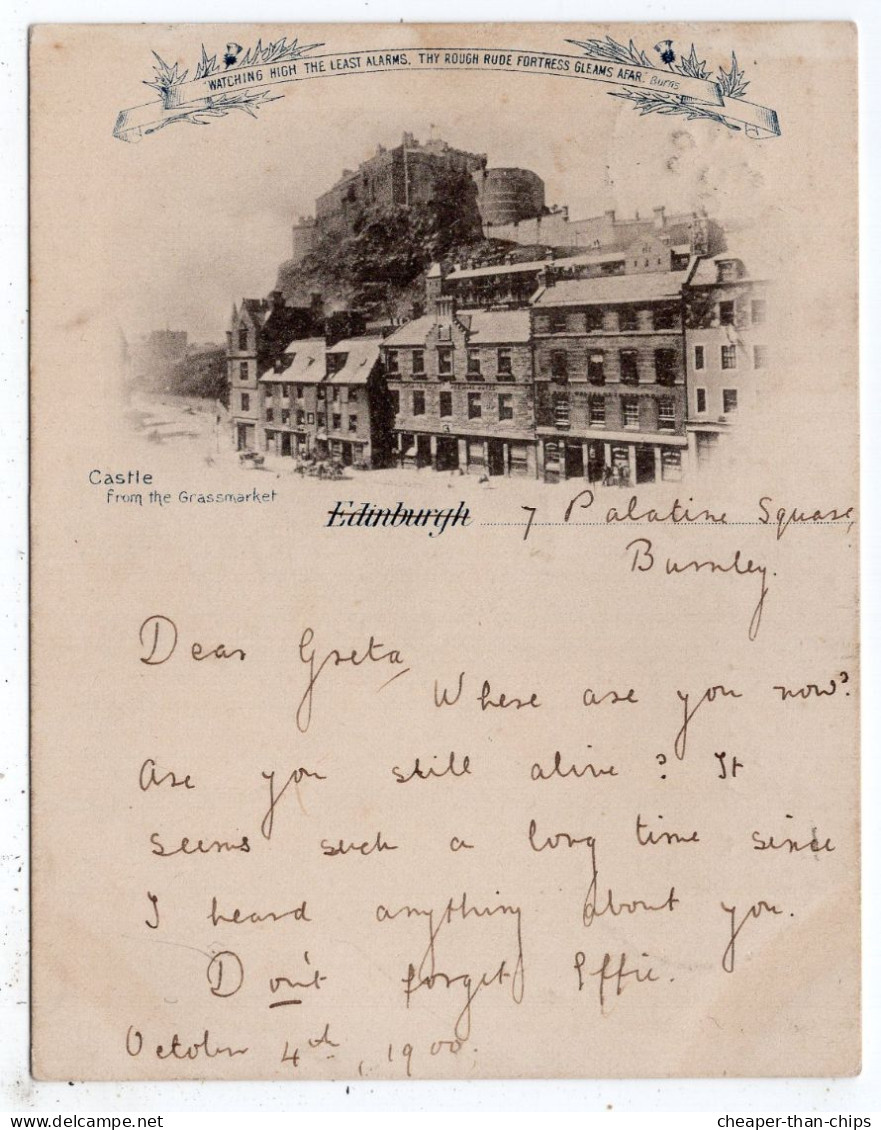 "WATCHING HIGH THE LEAST ALARMS, THY ROUGH RUDE FORTRESS GLEAMS AFAR." Burns.
Castle
from the Grassmarket
Edinburgh 7 Palatine Square,
Burnley.
Dear Greta,
Where are you now?
Are you still alive? It
seems such a long time since
I heard anything about you.
Don't forget Effie.
October 4th, 1900.
cheaper-than-chips